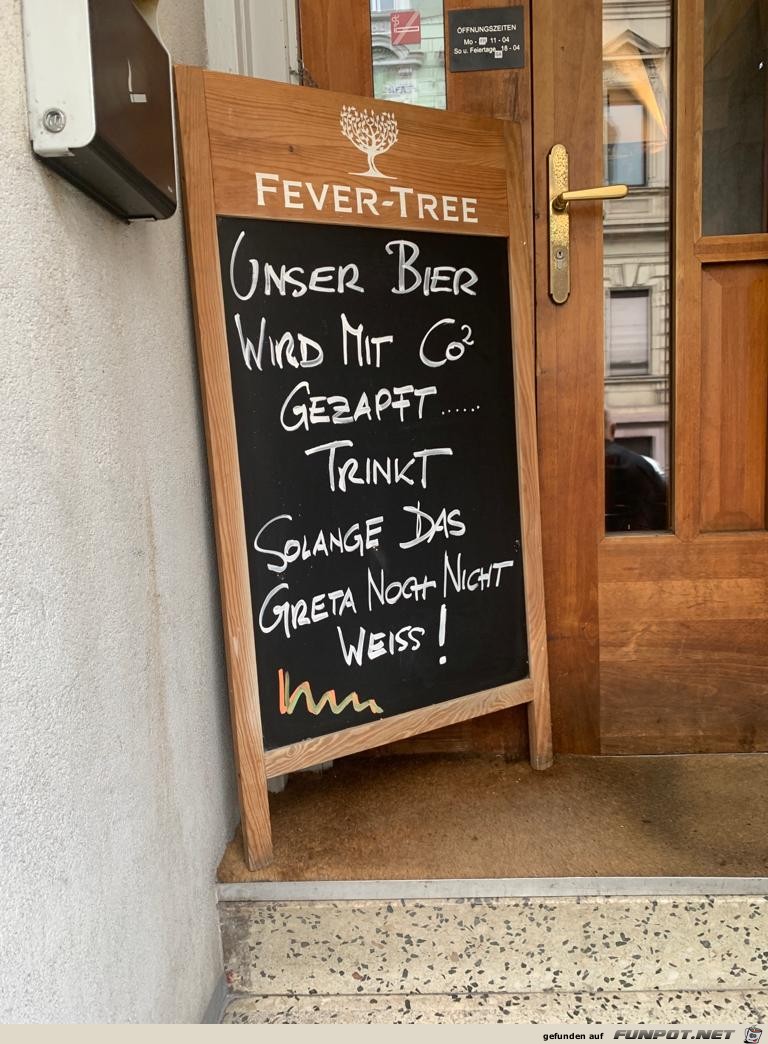 ÖFFNUNGSZEITEN
Mo - 11 - 04
So u. Feiertage 18 - 04
FEVER-TREE
UNSER BIER
WIRD MIT CO²
GEZAPFT.....
TRINKT
SOLANGE DAS
GRETA NOCH NICHT
WEISS!
gefunden auf FUNPOT.NET